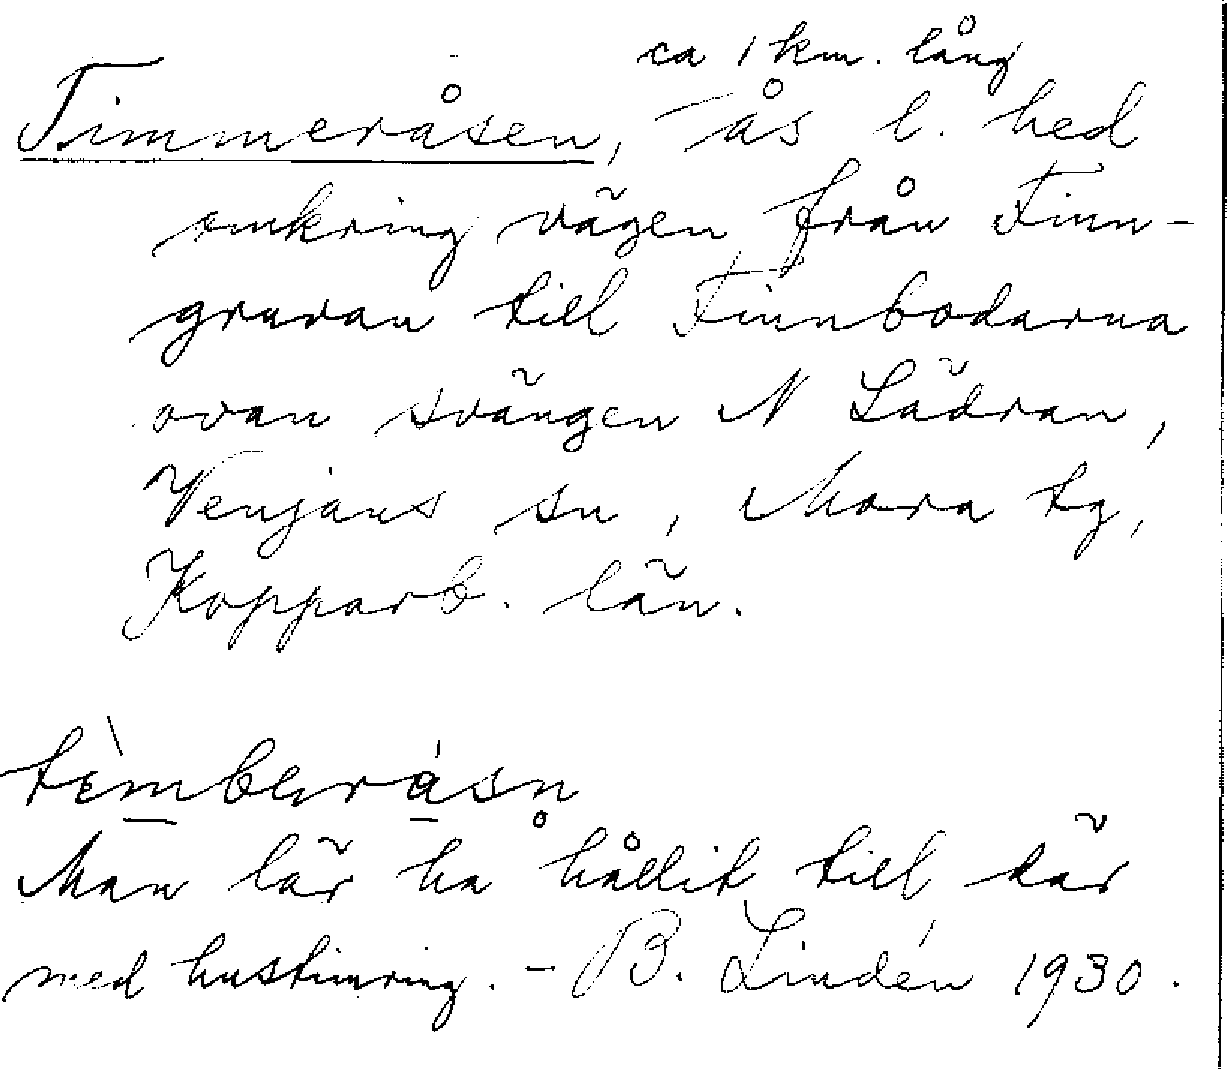 ca 1 km. lång
Timmeråsen, ås l. hed
omkring vägen från Finn-
gruvan till Finnbodarna
ovan svängen N Lädran,
Venjans sn, Mora tg,
Kopparb. län.
Man lär ha hållit till där
med hustimring. - B. Lindén 1930.